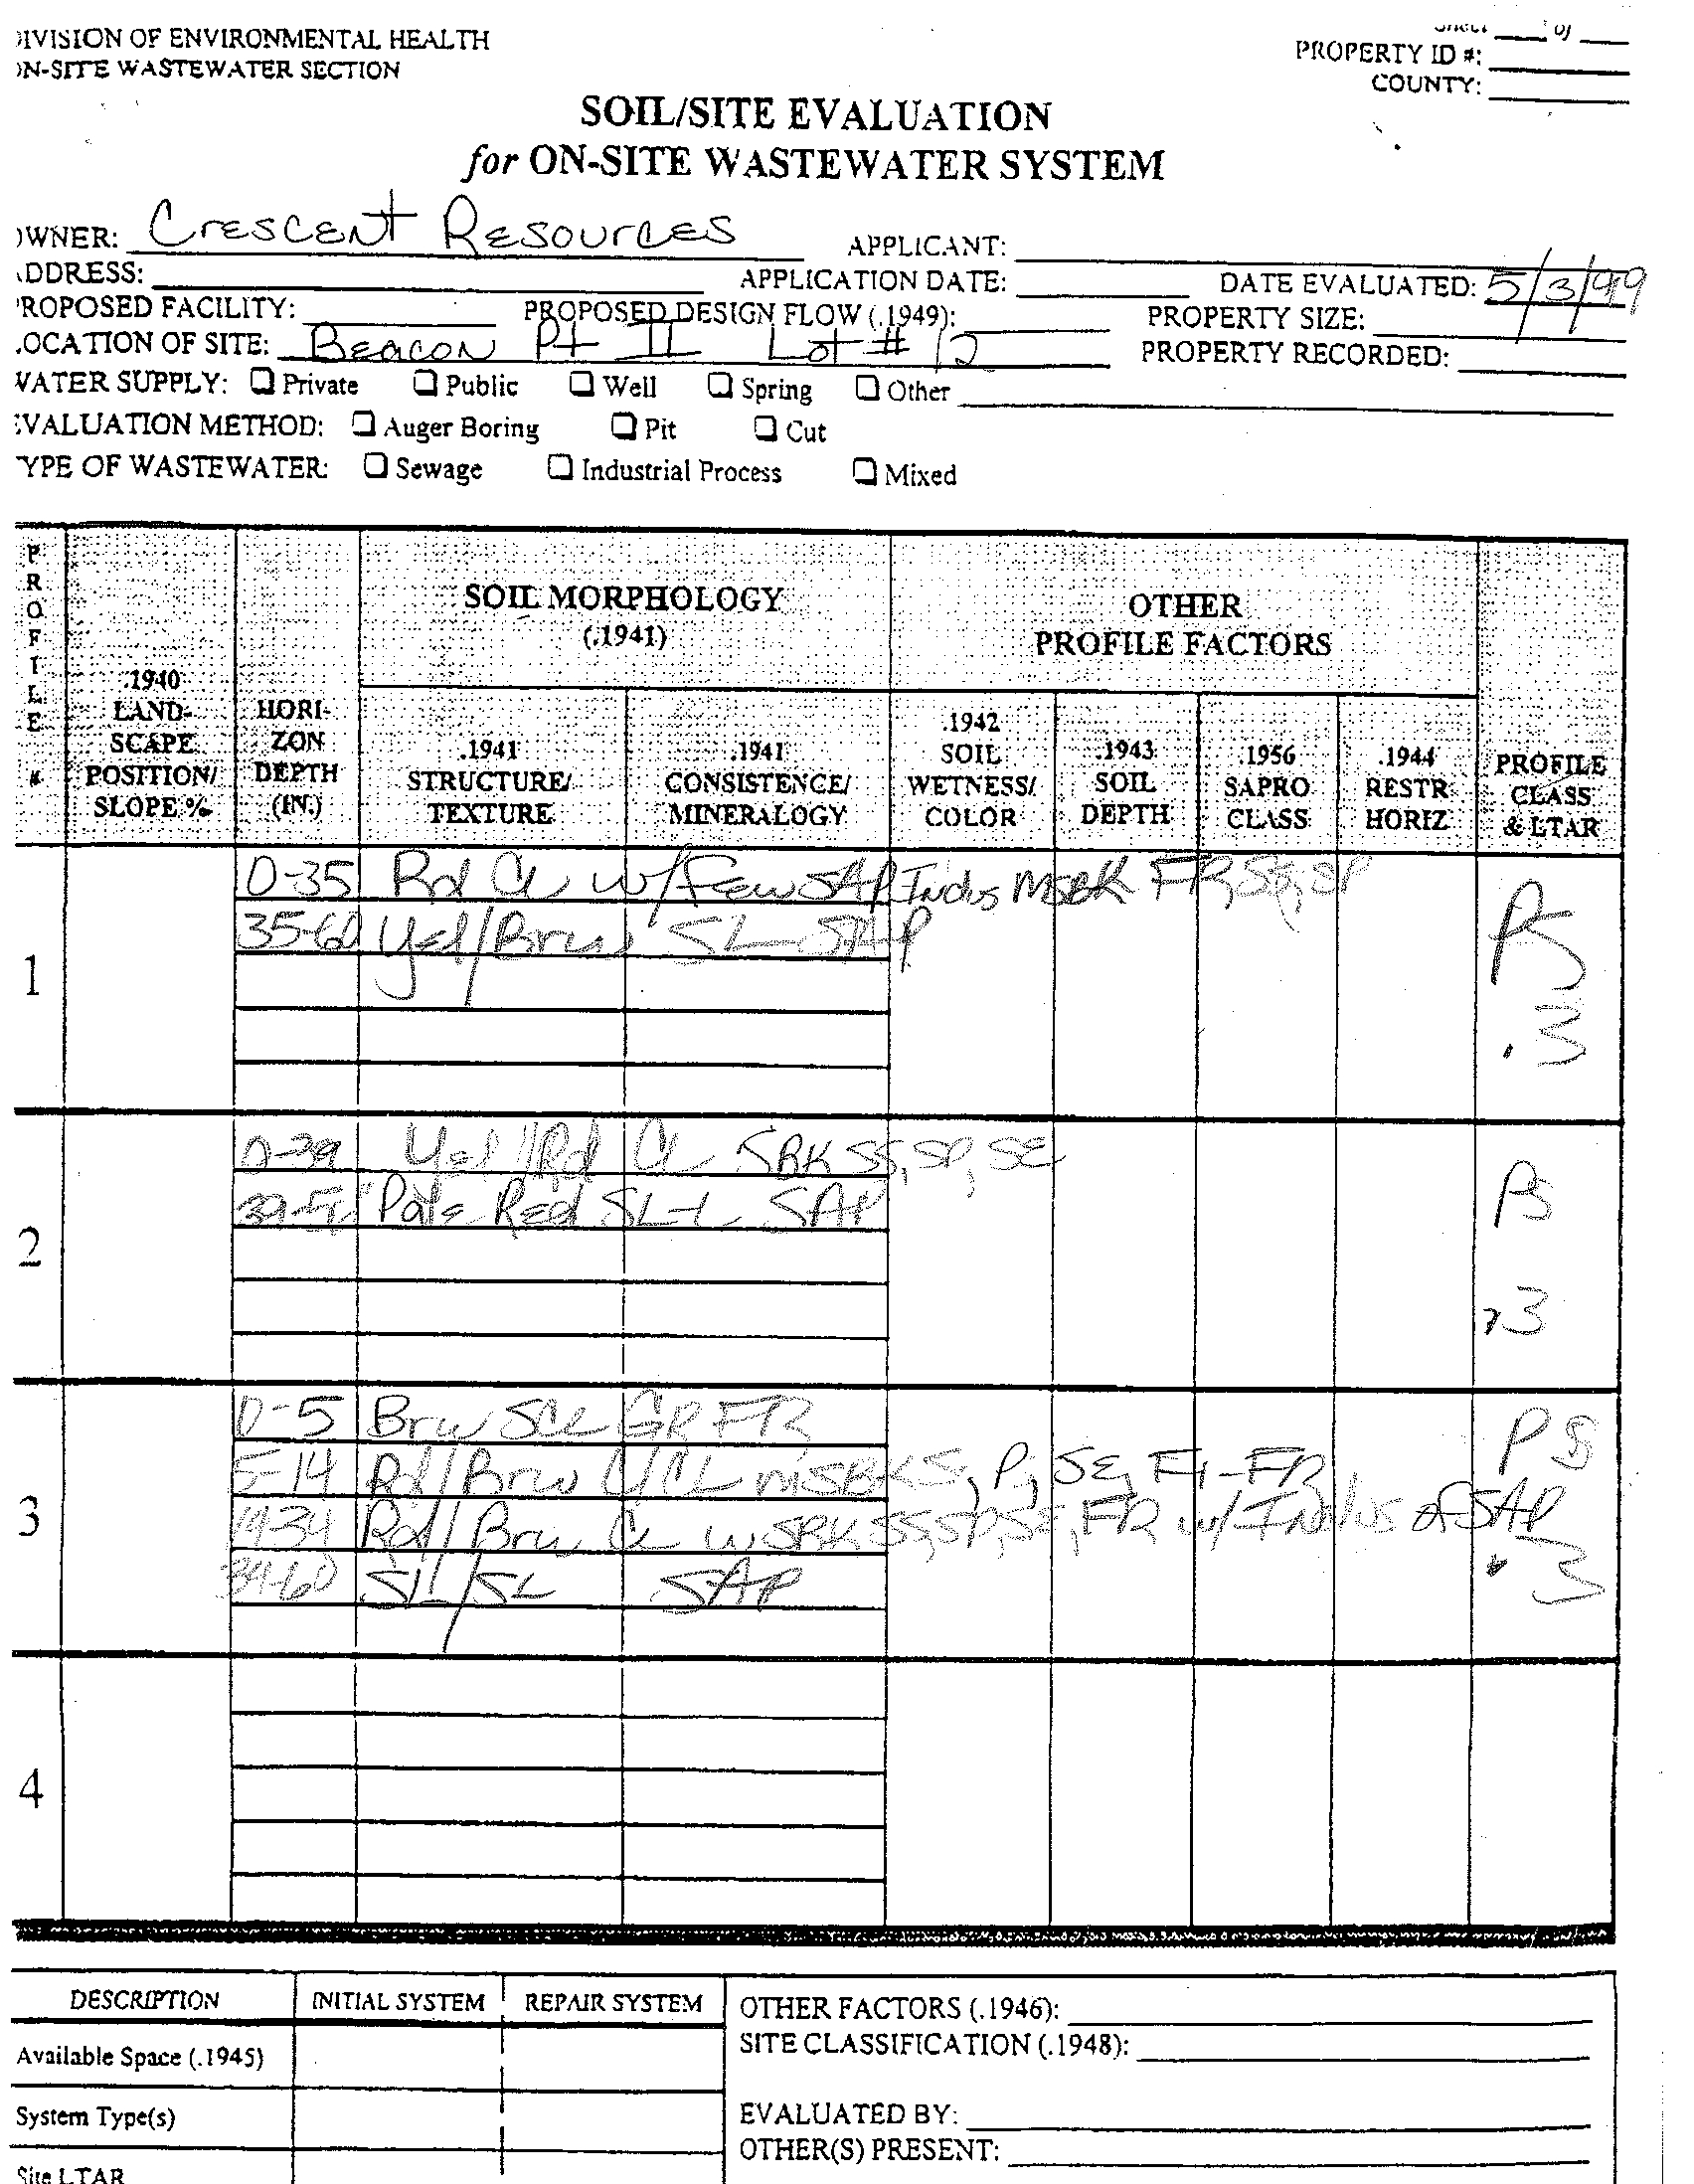 DIVISION OF ENVIRONMENTAL HEALTH
ON-SITE WASTEWATER SECTION
Sheet ___ of ___
PROPERTY ID #:
COUNTY:
SOIL/SITE EVALUATION
for ON-SITE WASTEWATER SYSTEM
OWNER: Crescent Resources APPLICANT:
ADDRESS: APPLICATION DATE: DATE EVALUATED: 5/3/99
PROPOSED FACILITY: PROPOSED DESIGN FLOW (.1949): PROPERTY SIZE:
LOCATION OF SITE: Beacon Pt II Lot # 12 PROPERTY RECORDED:
WATER SUPPLY: ❏ Private ❏ Public ❏ Well ❏ Spring ❏ Other
EVALUATION METHOD: ❏ Auger Boring ❏ Pit ❏ Cut
TYPE OF WASTEWATER: ❏ Sewage ❏ Industrial Process ❏ Mixed
PROFILE #
.1940 LAND-SCAPE POSITION/ SLOPE %
HORI-ZON DEPTH (IN.)
SOIL MORPHOLOGY (.1941)
.1941 STRUCTURE/ TEXTURE
.1941 CONSISTENCE/ MINERALOGY
OTHER PROFILE FACTORS
.1942 SOIL WETNESS/ COLOR
.1943 SOIL DEPTH
.1956 SAPRO CLASS
.1944 RESTR HORIZ
PROFILE CLASS & LTAR
1
0-35 Rd CL w/Few SAP Inclus MSBK FR, SS, SP
35-60 Yel/Brw SL SAP
PS
.3
2
0-39 Yel/Rd CL SBK SS, SP, SE
Pale Red SL-L SAP
PS
.3
3
0-5 Brw SCL GR FR
5-14 Rd/Brw C/CL mSBK S, P, SE, FI-FR
14-34 Rd/Brw CL wSBK SS, SP, SE, FR w/ Inclus of SAP
34-60 SL/SL SAP
PS
.3
4
DESCRIPTION INITIAL SYSTEM REPAIR SYSTEM
Available Space (.1945)
System Type(s)
Site LTAR
OTHER FACTORS (.1946):
SITE CLASSIFICATION (.1948):
EVALUATED BY:
OTHER(S) PRESENT: